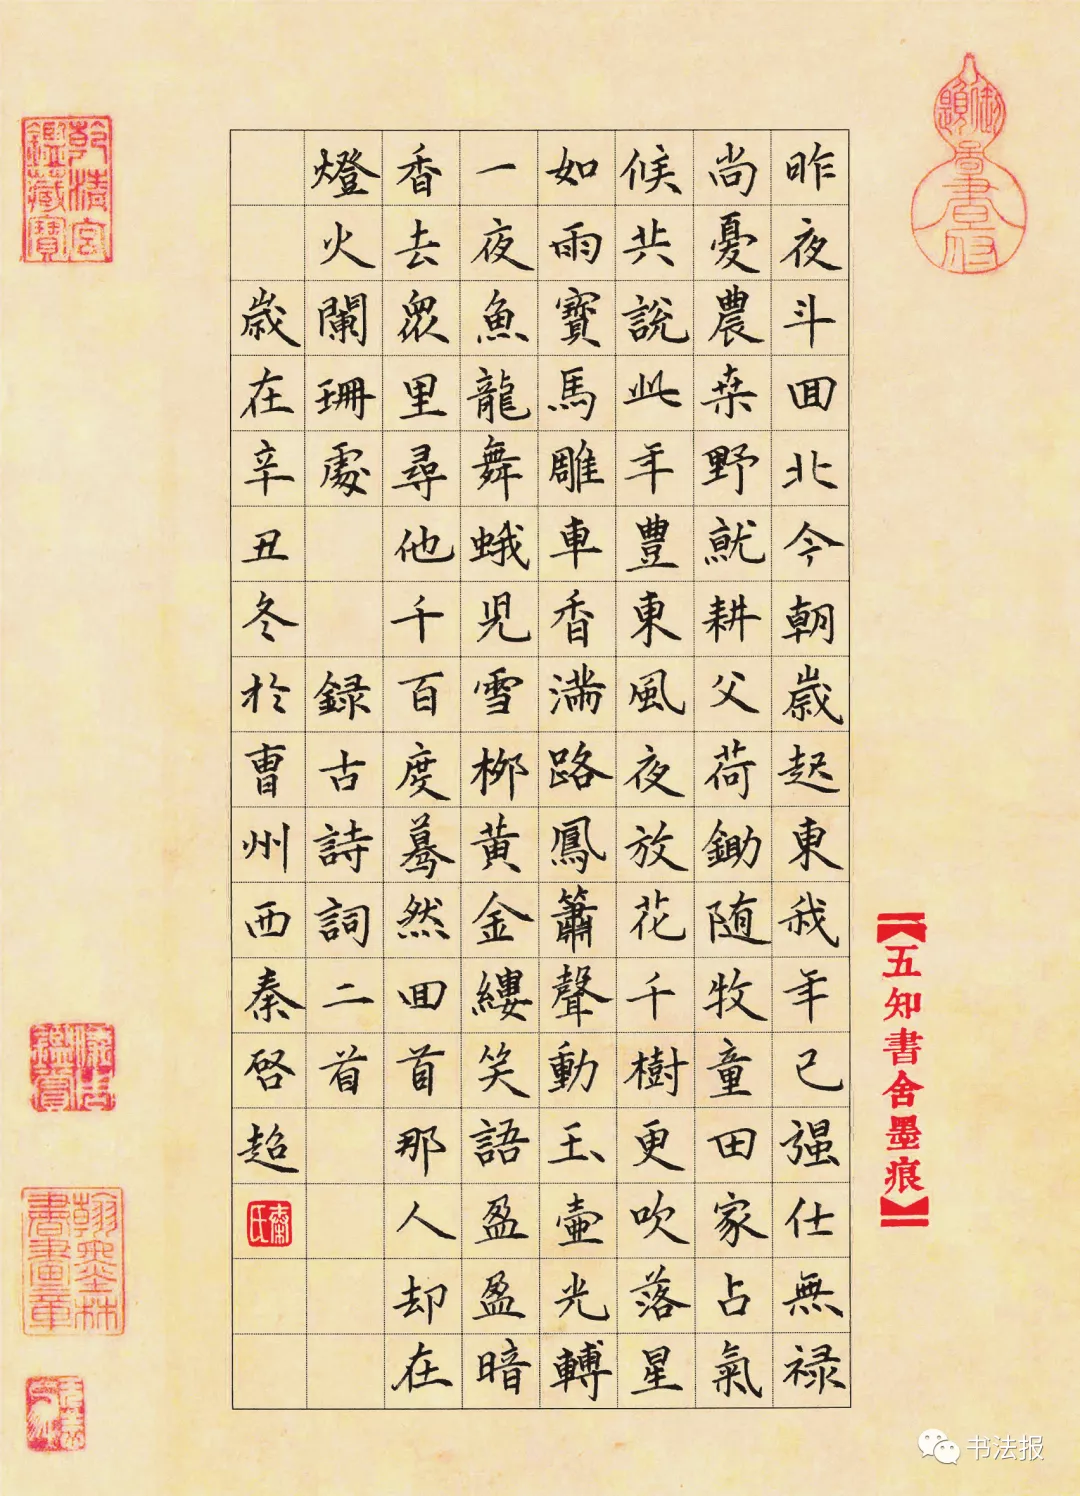 御題
五知書舍墨痕
昨夜斗回北今朝歲起東我年已強仕無禄
尚憂農桒野就耕父荷鋤随牧童田家占氣
候共説此年豐東風夜放花千樹更吹落星
如雨寳馬雕車香满路鳳簫聲動玉壺光轉
一夜魚龍舞蛾児雪桞黄金縷笑語盈盈暗
香去衆里尋他千百度蓦然回首那人却在
燈火闌珊處 録古詩詞二首
歲在辛丑冬於曹州西秦啓超
秦氏
乾清宫
鑑藏寳
鑑賞
翰墨林
書畫章
书法报